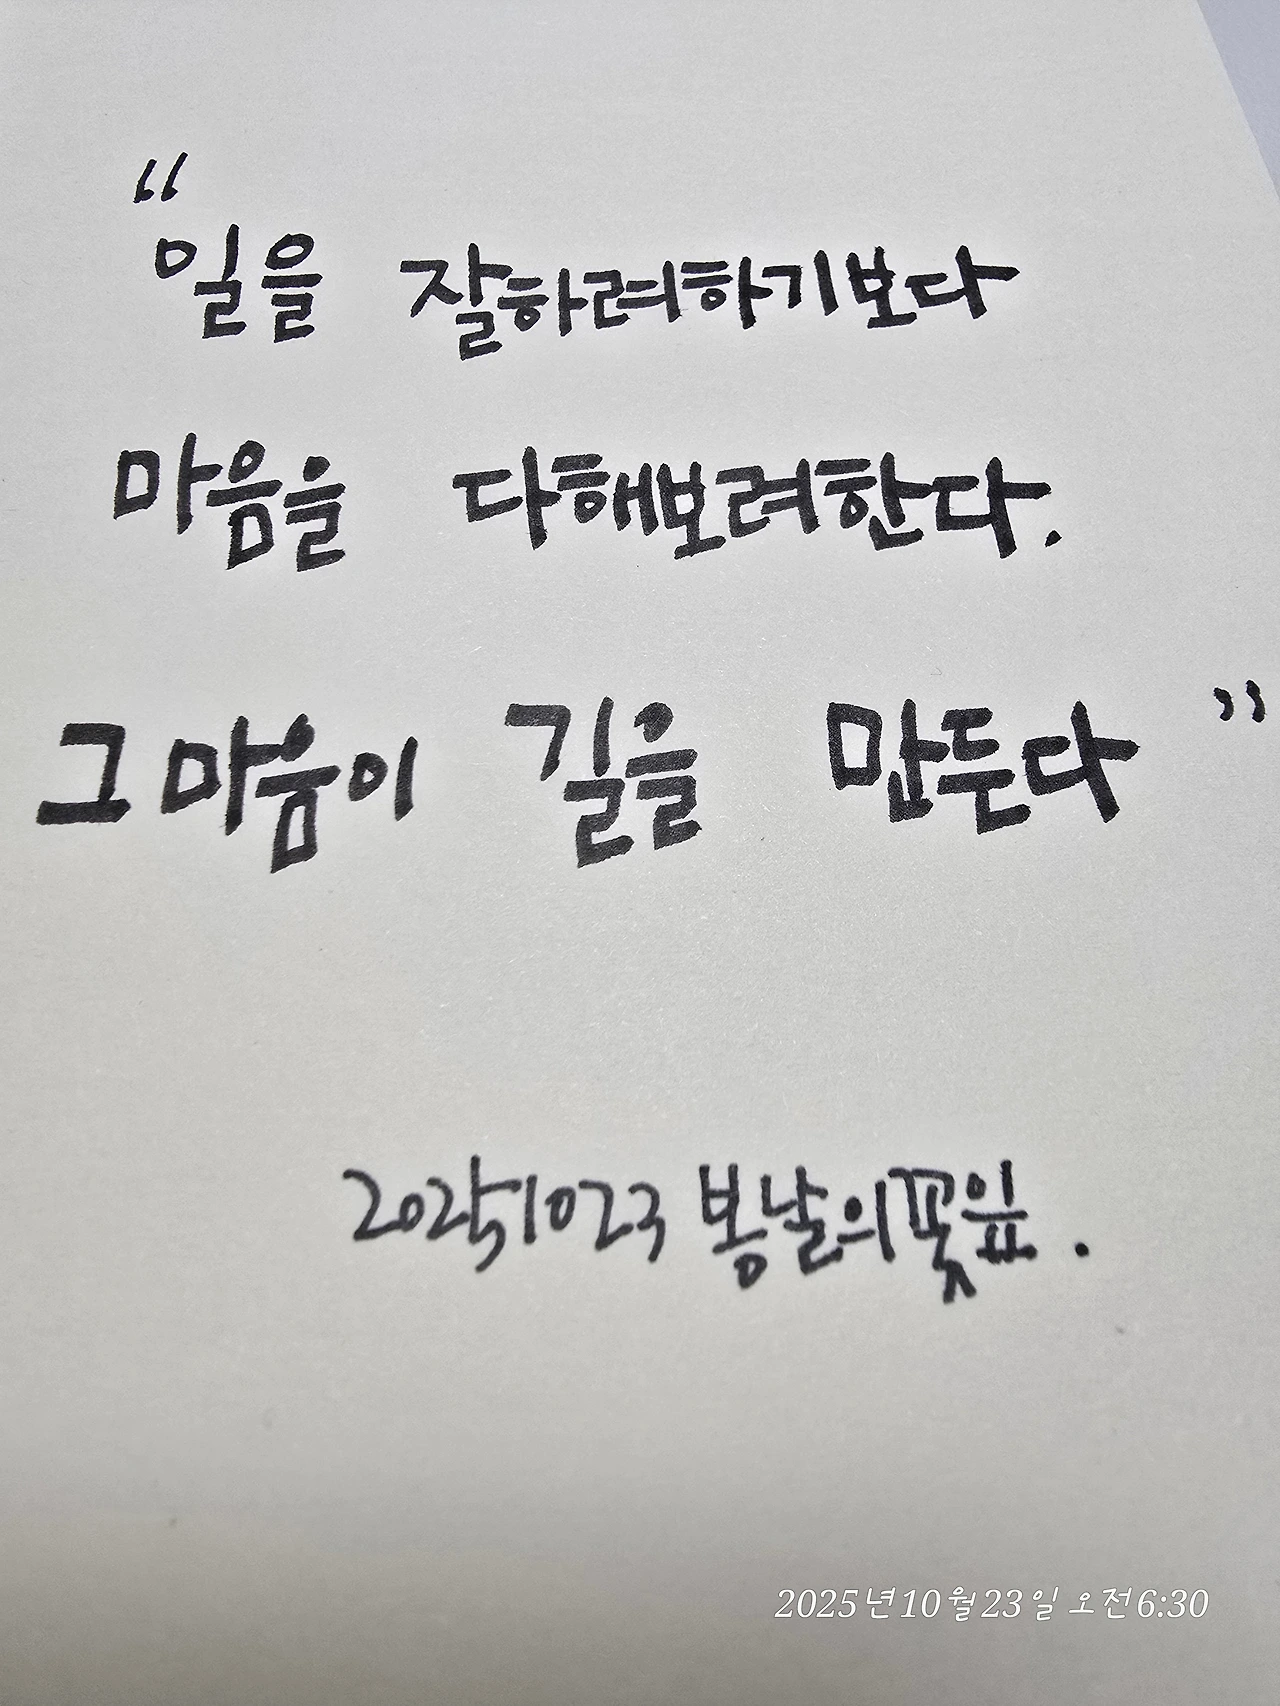 “
일을 잘하려하기보다
마음을 다해보려한다.
그 마음이 길을 만든다 ”
20251023 봄날의꽃잎.
2025년10월23일 오전6:30